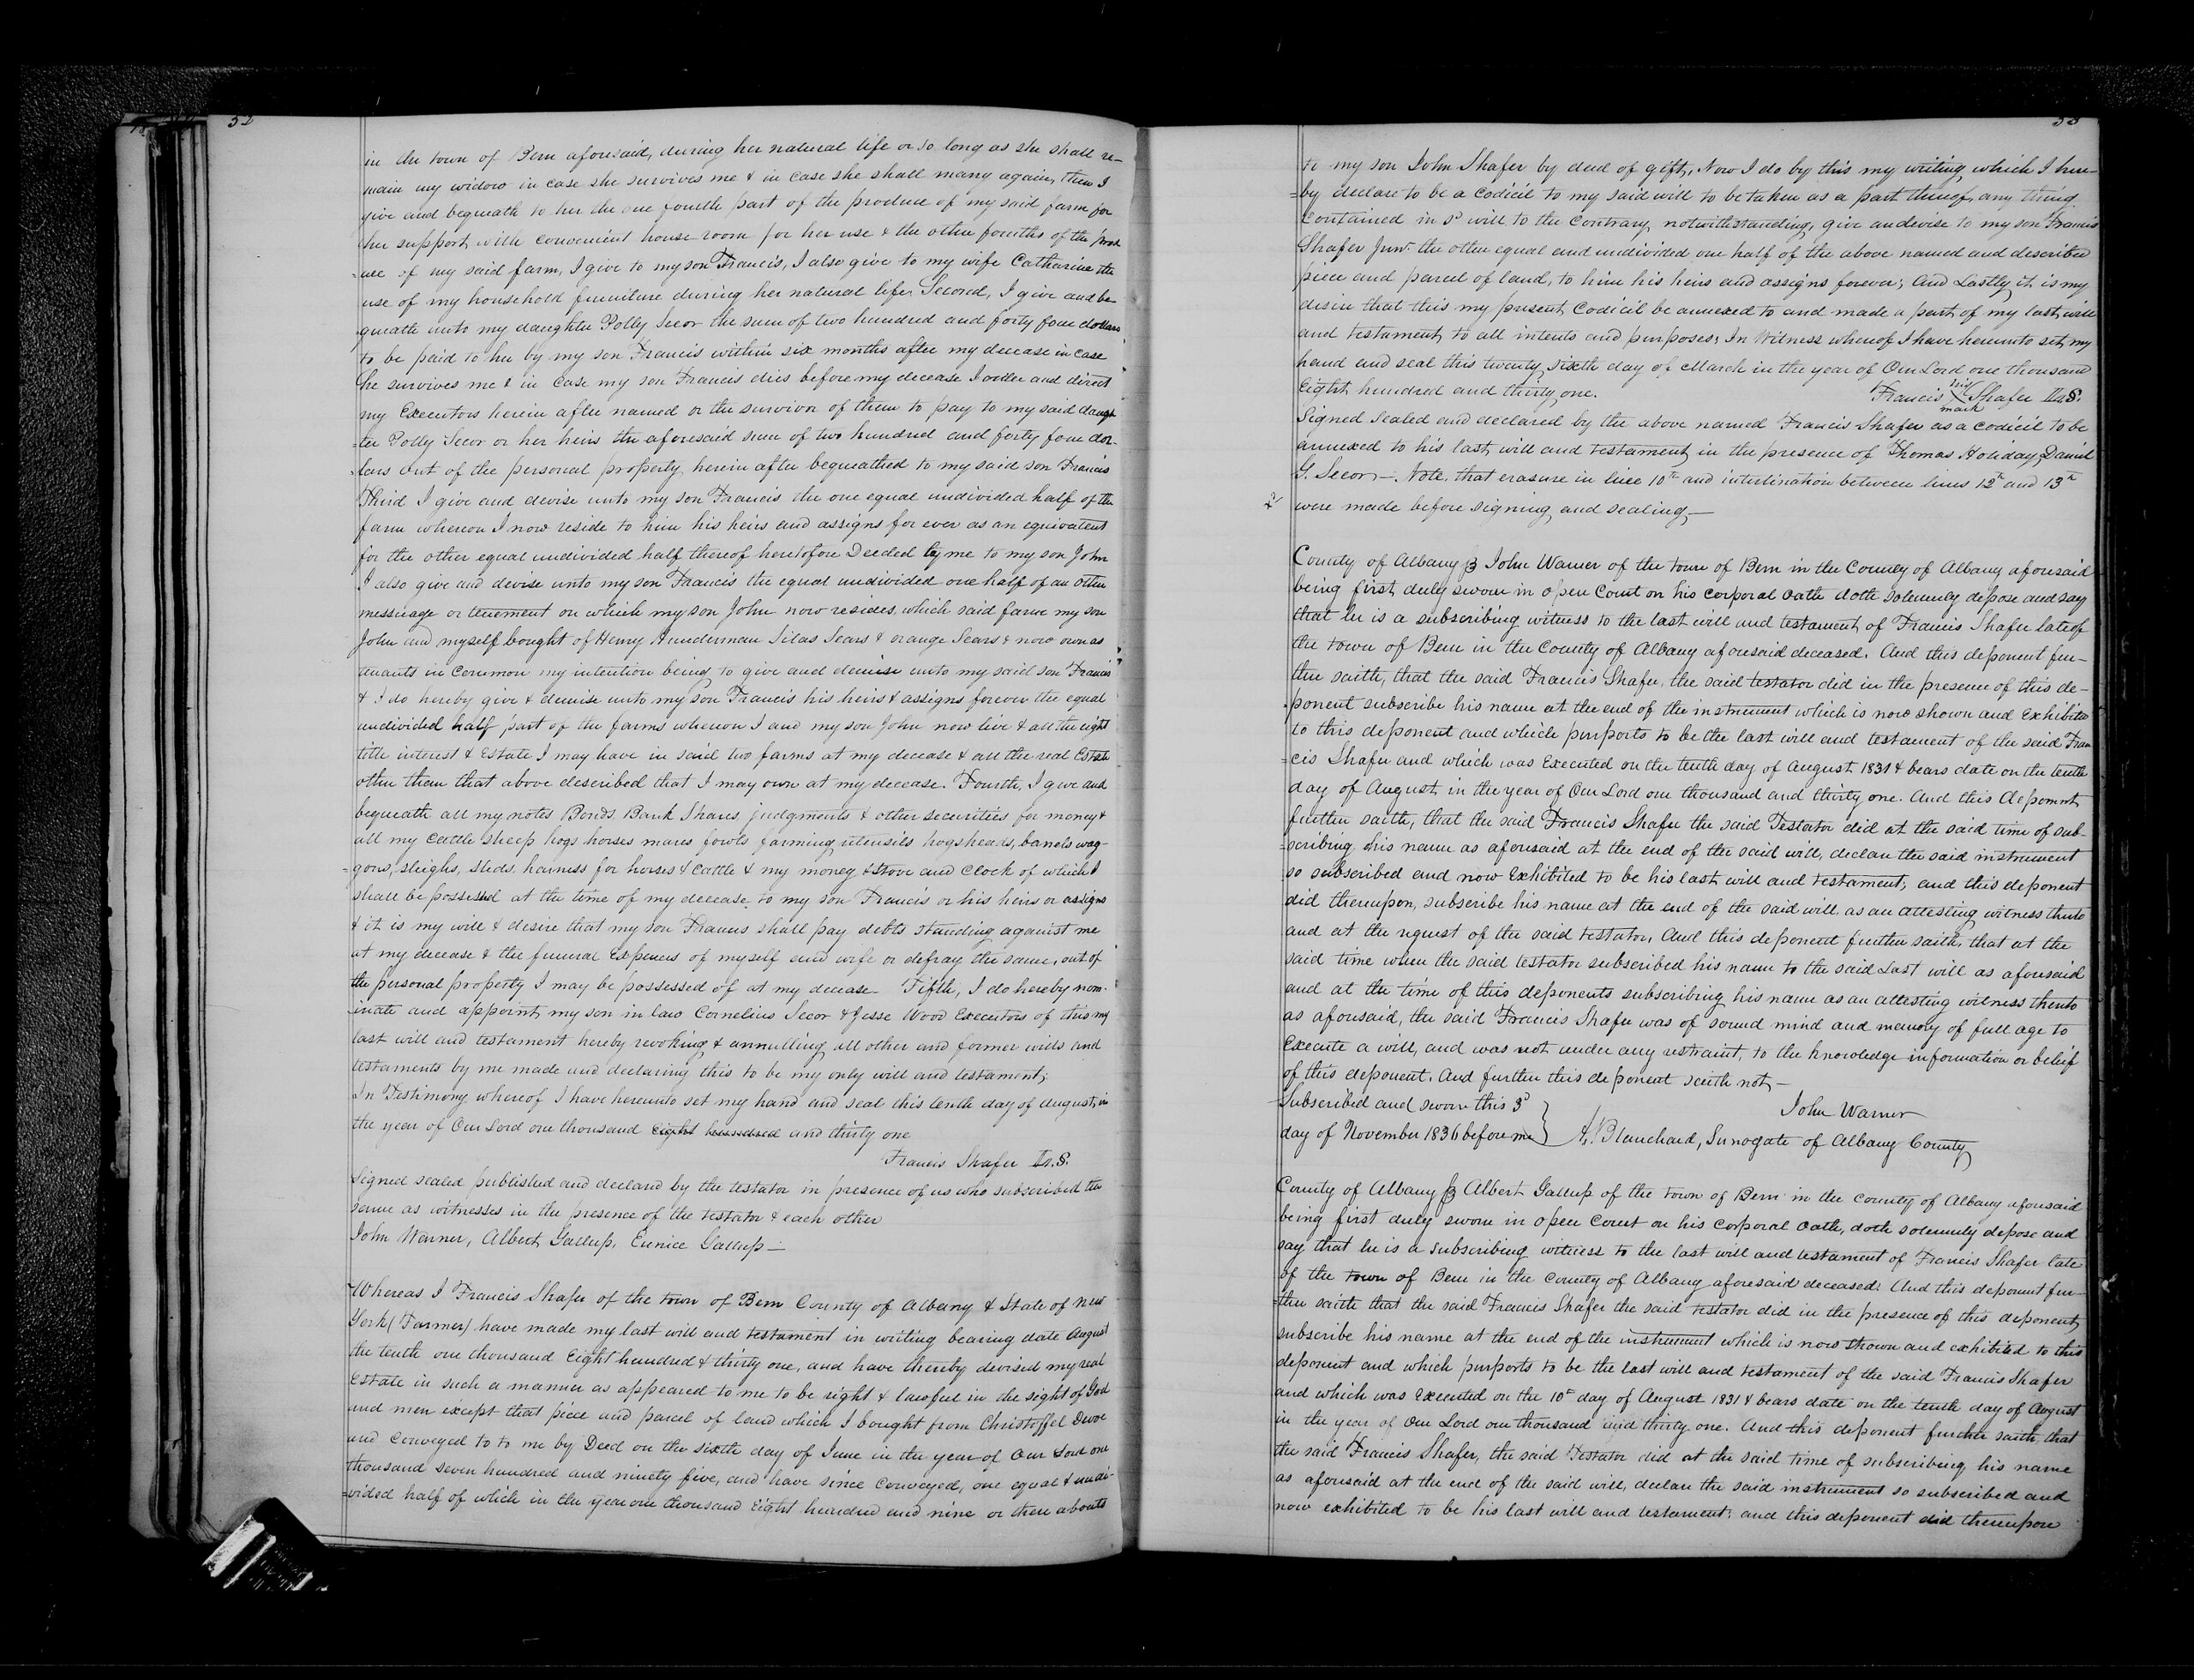 52
in the town of Bern aforesaid, during her natural life or so long as she shall re-
main my widow in case she survives me & in case she shall marry again, then I
give and bequeath to her the one fourth part of the produce of my said farm for
her support with convenient house room for her use & the other fourths of the prod
=uce of my said farm, I give to my son Francis, I also give to my wife Catharine the
use of my household furniture during her natural life. Second, I give and be
queath unto my daughter Polly Secor the sum of two hundred and forty four dollars
to be paid to her by my son Francis within six months after my decease in case
he survives me & in case my son Francis dies before my decease I order and direct
my Executors herein after named or the survivor of them to pay to my said daugh
=ter Polly Secor or her heirs the aforesaid sum of two hundred and forty four dol-
=lars out of the personal property herein after bequeathed to my said son Francis
Third I give and devise unto my son Francis the one equal undivided half of the
farm whereon I now reside to him his heirs and assigns for ever as an equivalent
for the other equal undivided half thereof heretofore Deeded by me to my son John
I also give and devise unto my son Francis the equal undivided one half of an other
messuage or tenement on which my son John now resides, which said farm my son
John and myself bought of Henry Hunderman Silas Sears & orange Sears & now own as
tenants in common my intention being to give and demise unto my said son Francis
& I do hereby give & demise unto my son Francis his heirs & assigns forever the equal
undivided half part of the farms whereon I and my son John now live & all the right
title interest & Estate I may have in said two farms at my decease & all the real Estate
other then that above described that I may own at my decease. Fourth, I give and
bequeath all my notes Bonds Bank Shares, judgments & other securities for money &
all my Cattle sheep hogs horses mares fowls farming utensils hogsheads, barrels wag-
=gons, sleighs, sleds, harness for horses & cattle & my money & stove and clock of which I
shall be possessed at the time of my decease, to my son Francis or his heirs or assigns
& it is my will & desire that my son Francis shall pay debts standing against me
at my decease & the funeral Expences of myself and wife or defray the same, out of
the personal property I may be possessed of at my decease_ Fifth, I do hereby nom-
inate and appoint my son in law Cornelius Secor & Jesse Wood Executors of this my
last will and testament hereby revoking & annulling all other and former wills and
testaments by me made and declaring this to be my only will and testament;
In Testimony whereof I have hereunto set my hand and seal this tenth day of August, in
the year of Our Lord one thousand eight hundred and thirty one
Francis Shafer L.S.
Signed sealed published and declared by the testator in presence of us who subscribed the
same as witnesses in the presence of the testator & each other
John Warner, Albert Gallup, Eunice Gallup_
Whereas I Francis Shafer of the town of Bern County of Albany & State of New
York (Farmer) have made my last will and testament in writing bearing date August
the tenth one thousand Eight hundred & thirty one, and have thereby devised my real
Estate in such a manner as appeared to me to be right & lawful in the sight of God
and men except that piece and parcel of land which I bought from Christoffel Devoe
and Conveyed to to me by Deed on the sixth day of June in the year of Our Lord one
thousand seven hundred and ninety five, and have since conveyed, one equal & undi-
=vided half of which in the year one thousand Eight hundred and nine or then abouts
53
to my son John Shafer by deed of gift. Now I do by this my writing which I here-
=by declare to be a Codicil to my said will to be taken as a part thereof, any thing
contained in sd will to the Contrary notwithstanding, give and devise to my son Francis
Shafer Junr the other equal and undivided one half of the above named and described
piece and parcel of land, to him his heirs and assigns forever; And Lastly it is my
desire that this my present Codicil be annexed to and made a part of my last will
and testament to all intents and purposes; In Witness whereof I have hereunto set my
hand and seal this twenty sixth day of March in the year of Our Lord one thousand
Eight hundred and thirty one.
Francis his X mark Shafer L.S.
Signed Sealed and declared by the above named Francis Shafer as a Codicil to be
annexed to his last will and testament in the presence of Thomas Holiday, Daniel
G. Secor_. Note, that erasure in line 10th and interlination between lines 12th and 13th
were made before signing and sealing_
County of Albany ss John Warner of the town of Bern in the County of Albany aforesaid
being first duly sworn in open Court on his corporal oath doth solemnly depose and say
that he is a subscribing witness to the last will and testament of Francis Shafer late of
the town of Bern in the County of Albany aforesaid deceased. And this deponent fur-
ther saith, that the said Francis Shafer, the said testator did in the presence of this de-
ponent subscribe his name at the end of the instrument which is now shown and Exhibited
to this deponent and which purports to be the last will and testament of the said Fran
=cis Shafer and which was Executed on the tenth day of August 1831 & bears date on the tenth
day of August in the year of Our Lord one thousand and thirty one. And this deponent
further saith, that the said Francis Shafer the said Testator did at the said time of sub-
=scribing his name as aforesaid at the end of the said will, declare the said instrument
so subscribed and now Exhibited to be his last will and testament, and this deponent
did thereupon, subscribe his name at the end of the said will as an attesting witness thereto
and at the request of the said testator. And this deponent further saith, that at the
said time when the said testator subscribed his name to the said Last will as aforesaid
and at the time of this deponents subscribing his name as an attesting witness thereto
as aforesaid, the said Francis Shafer was of sound mind and memory of full age to
Execute a will, and was not under any restraint, to the knowledge information or belief
of this deponent. And further this deponent saith not_
John Warner
Subscribed and sworn this 3d
day of November 1836 before me } A. Blanchard, Surrogate of Albany County
County of Albany ss Albert Gallup of the town of Bern in the county of Albany aforesaid
being first duly sworn in open Court on his corporal oath, doth solemnly depose and
say that he is a subscribing witness to the last will and testament of Francis Shafer late
of the town of Bern in the county of Albany aforesaid deceased: And this deponent fur-
=ther saith that the said Francis Shafer the said testator did in the presence of this deponent
subscribe his name at the end of the instrument which is now shown and exhibited to this
deponent and which purports to be the last will and testament of the said Francis Shafer
and which was Executed on the 10th day of August 1831 & bears date on the tenth day of August
in the year of Our Lord one thousand and thirty one. And this deponent further saith that
the said Francis Shafer, the said Testator did at the said time of subscribing his name
as aforesaid at the end of the said will, declare the said instrument so subscribed and
now exhibited to be his last will and testament: and this deponent did thereupon